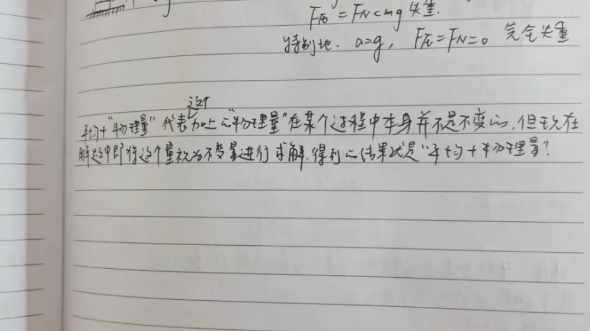 F压=FN<mg 失重.
特别地. a=g, F压=FN=0 完全失重
这个
平均+"物理量" 代表加上的"物理量"在某个过程中本身并不是不变的,但现在
解这中即将这个量视为不变量进行求解.得到的结果就是"平均+物理量?